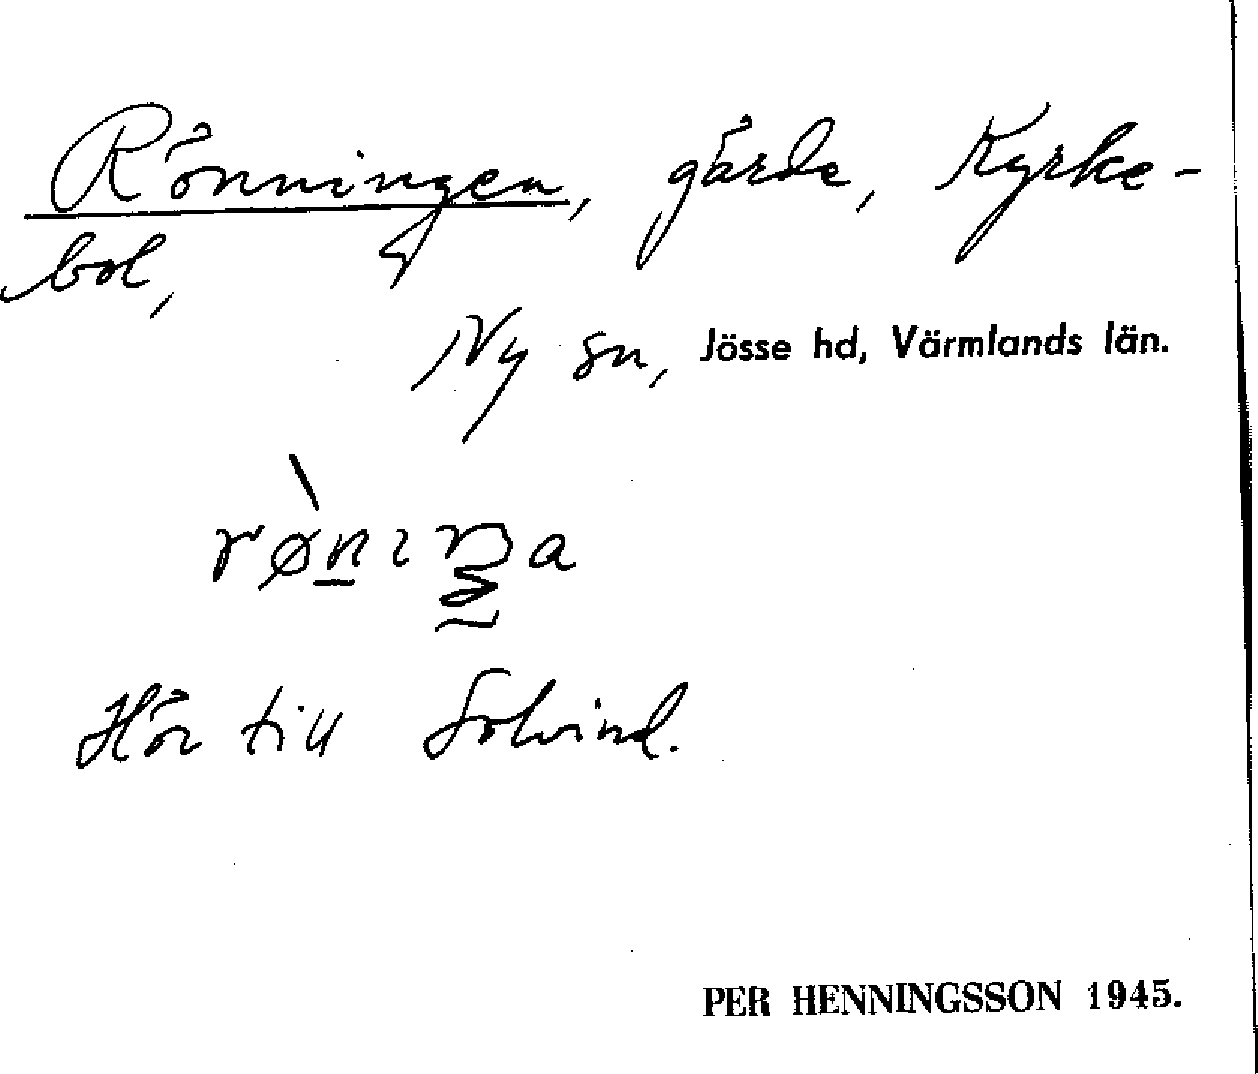 Rönningen, gärde, Kyrke-
bol,
Ny sn, Jösse hd, Värmlands län.
Hör till Solvind.
PER HENNINGSSON 1945.